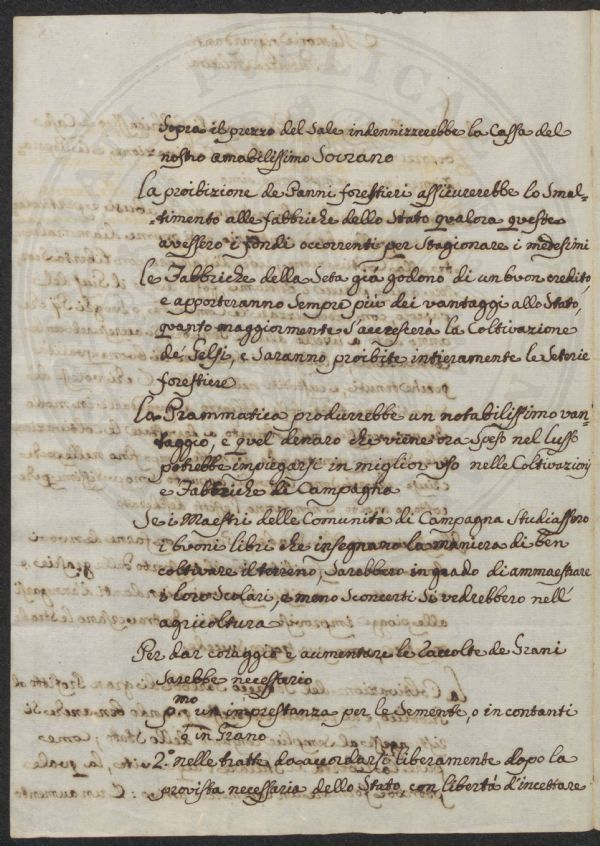 Sopra il prezzo del Sale indennizzerebbe la Cassa del
nostro amabilissimo Sovrano
La proibizione de Panni forestieri assicurerebbe lo Smal-
timento alle fabbriche dello Stato qualora queste
avessero i fondi occorrenti per Stagionare i medesimi
le Fabbriche della Seta già godono di un buon credito
e apporteranno Sempre più dei vantaggi allo Stato,
quanto maggiormente S'accrescerà la Coltivazione
de' Gelsi, e Saranno proibite intieramente le Seterie
forestiere
La Prammatica produrrebbe un notabilissimo van-
taggio, e quel denaro che viene ora Speso nel Lusso
potrebbe impiegarsi in miglior uso nelle Coltivazioni
e Fabbriche di Campagna
Se i Maestri delle Comunità di Campagna Studiassero
i buoni libri che insegnano la maniera di ben
coltivare il terreno, Sarebbero in grado di ammaestrare
i loro Scolari, e meno Sconcerti Si vedrebbero nell'
agricoltura
Per dar coraggio e aumentare le Raccolte de Grani
Sarebbe necessario
p.mo un imprestanza per le Semente, o in contanti
ò in Grano
2.° nelle tratte da accordarsi liberamente dopo la
provista necessaria dello Stato con libertà d'incettare